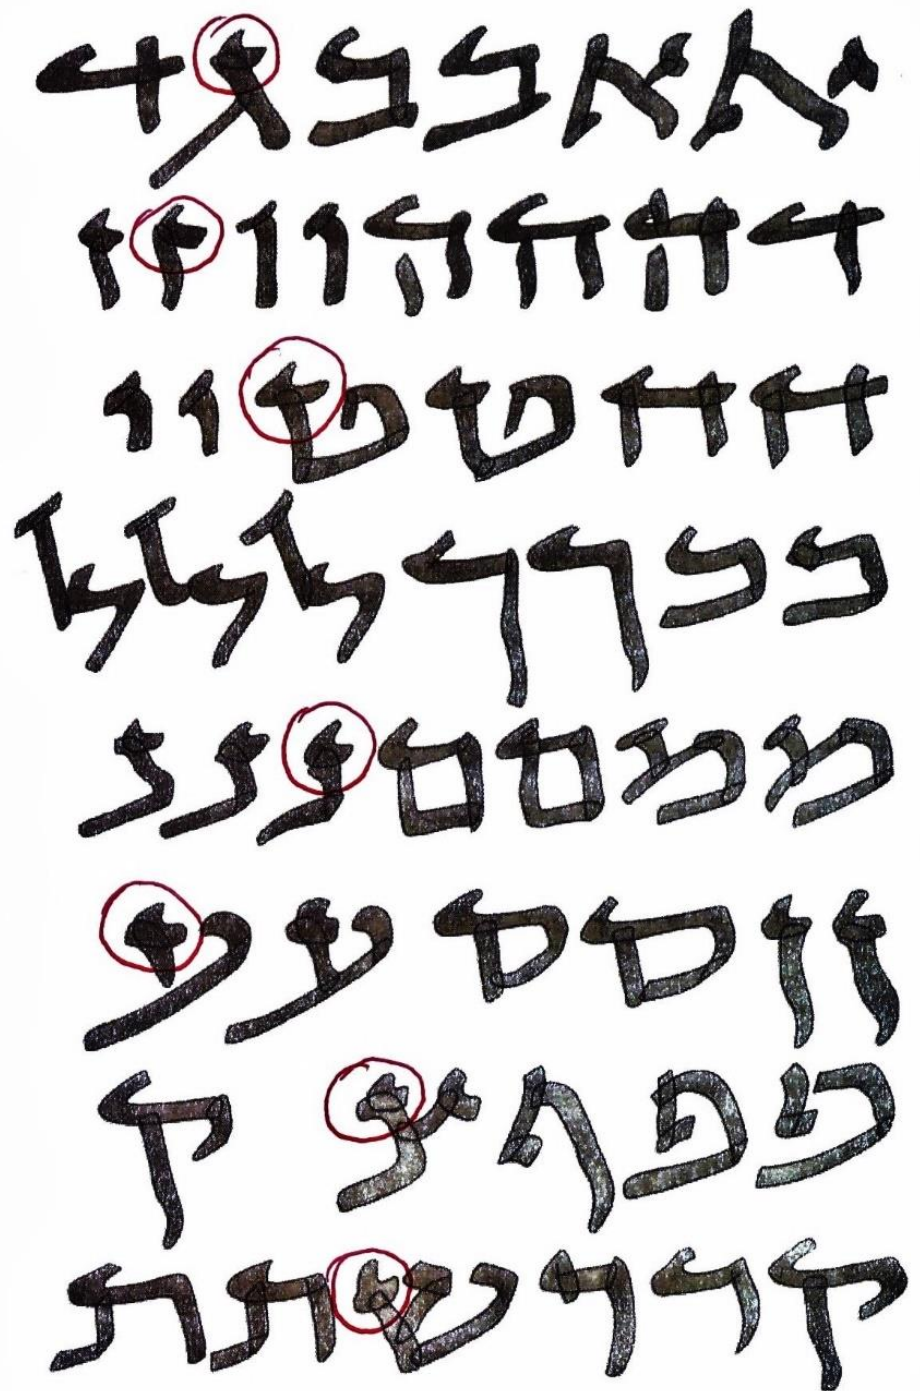 א א ב ב ג ד
ד ה ה ה ו ו ז ז
ח ח ט ט י י
כ כ ך ך ל ל ל
מ מ ם ם נ נ נ
ן ן ס ס ע ע
פ פ ף צ ק
ק ר ר ש ת ת